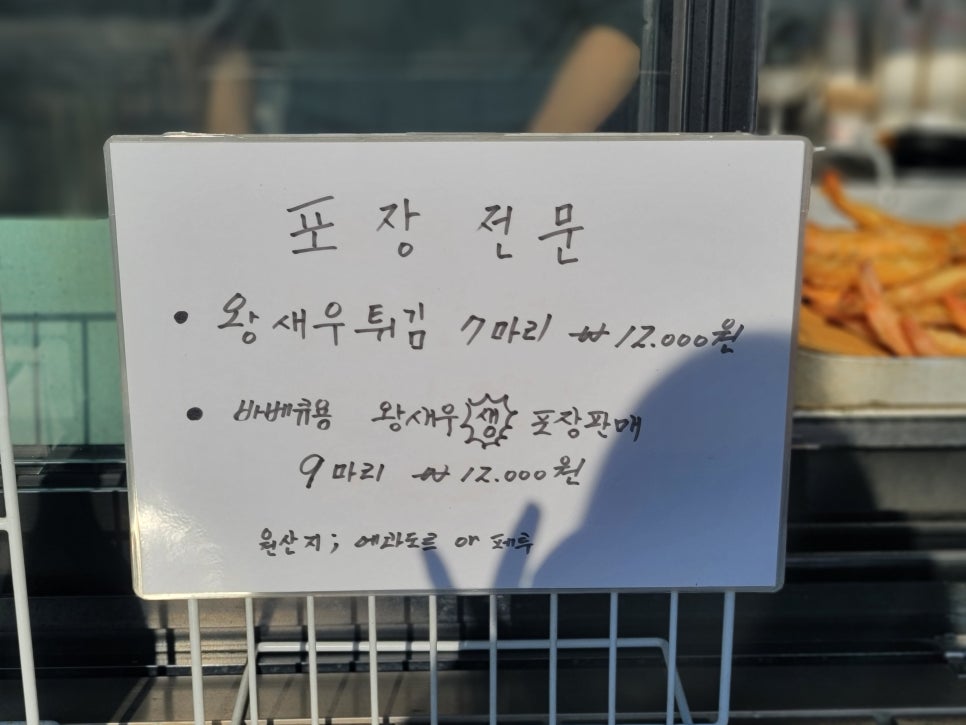 포장 전문
• 왕새우튀김 7마리 ₩12.000원
• 바베큐용 왕새우 생 포장판매
9마리 ₩12.000원
원산지; 에콰도르 or 페루